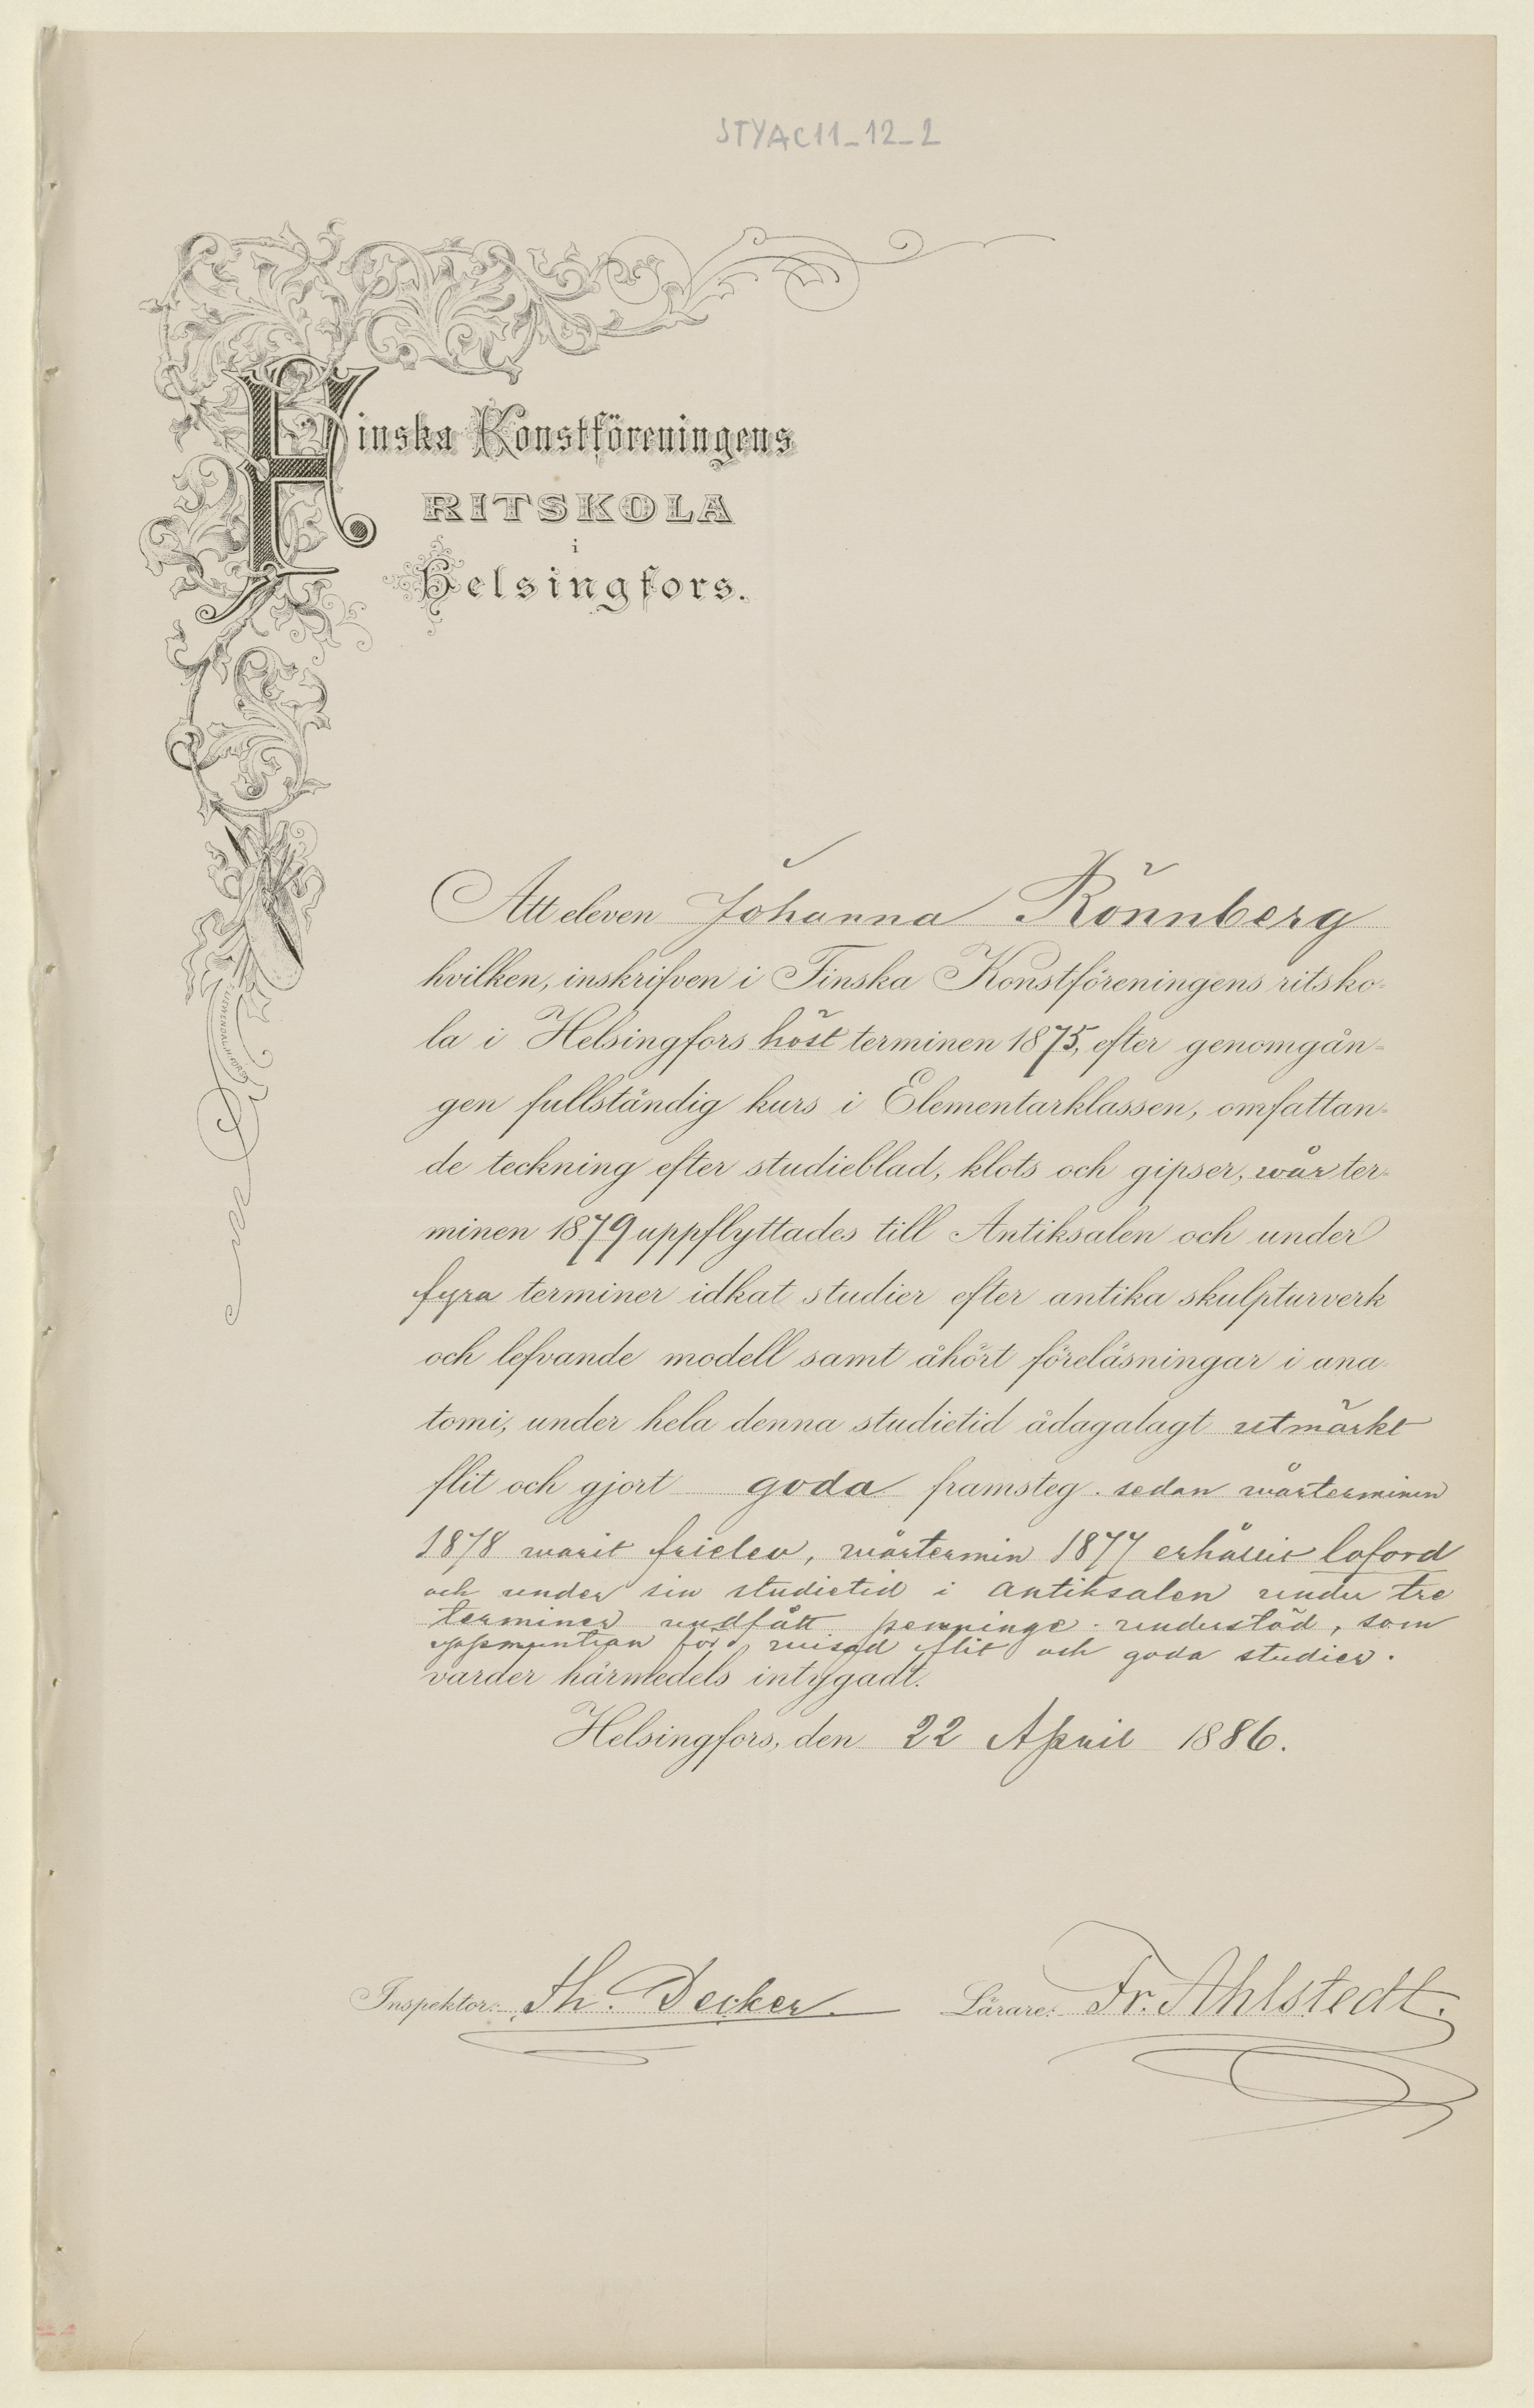 STYAC11_12_2
Finska Konstföreningens
RITSKOLA
i
Helsingfors.
Att eleven Johanna Rönnberg
hvilken, inskrifven i Finska Konstföreningens ritsko-
la i Helsingfors höst terminen 1875, efter genomgån-
gen fullständig kurs i Elementarklassen, omfattan-
de teckning efter studieblad, klots och gipser, wår ter-
minen 1879 uppflyttades till Antiksalen och under
fyra terminer idkat studier efter antika skulpturverk
och lefvande modell samt åhört föreläsningar i ana
tomi, under hela denna studietid ådagalagt utmärkt
flit och gjort goda framsteg. sedan wårterminen
1878 warit frielev, wårtermin 1877 erhållit loford
och under sin studietid i antiksalen under tre
terminer undfått penninge-understöd, som
för wisad flit och goda studier.
varder härmedels intygadt.
Helsingfors, den 22 April 1886.
Inspektor: Th. Decker. Lärare: Fr. Ahlstedt.